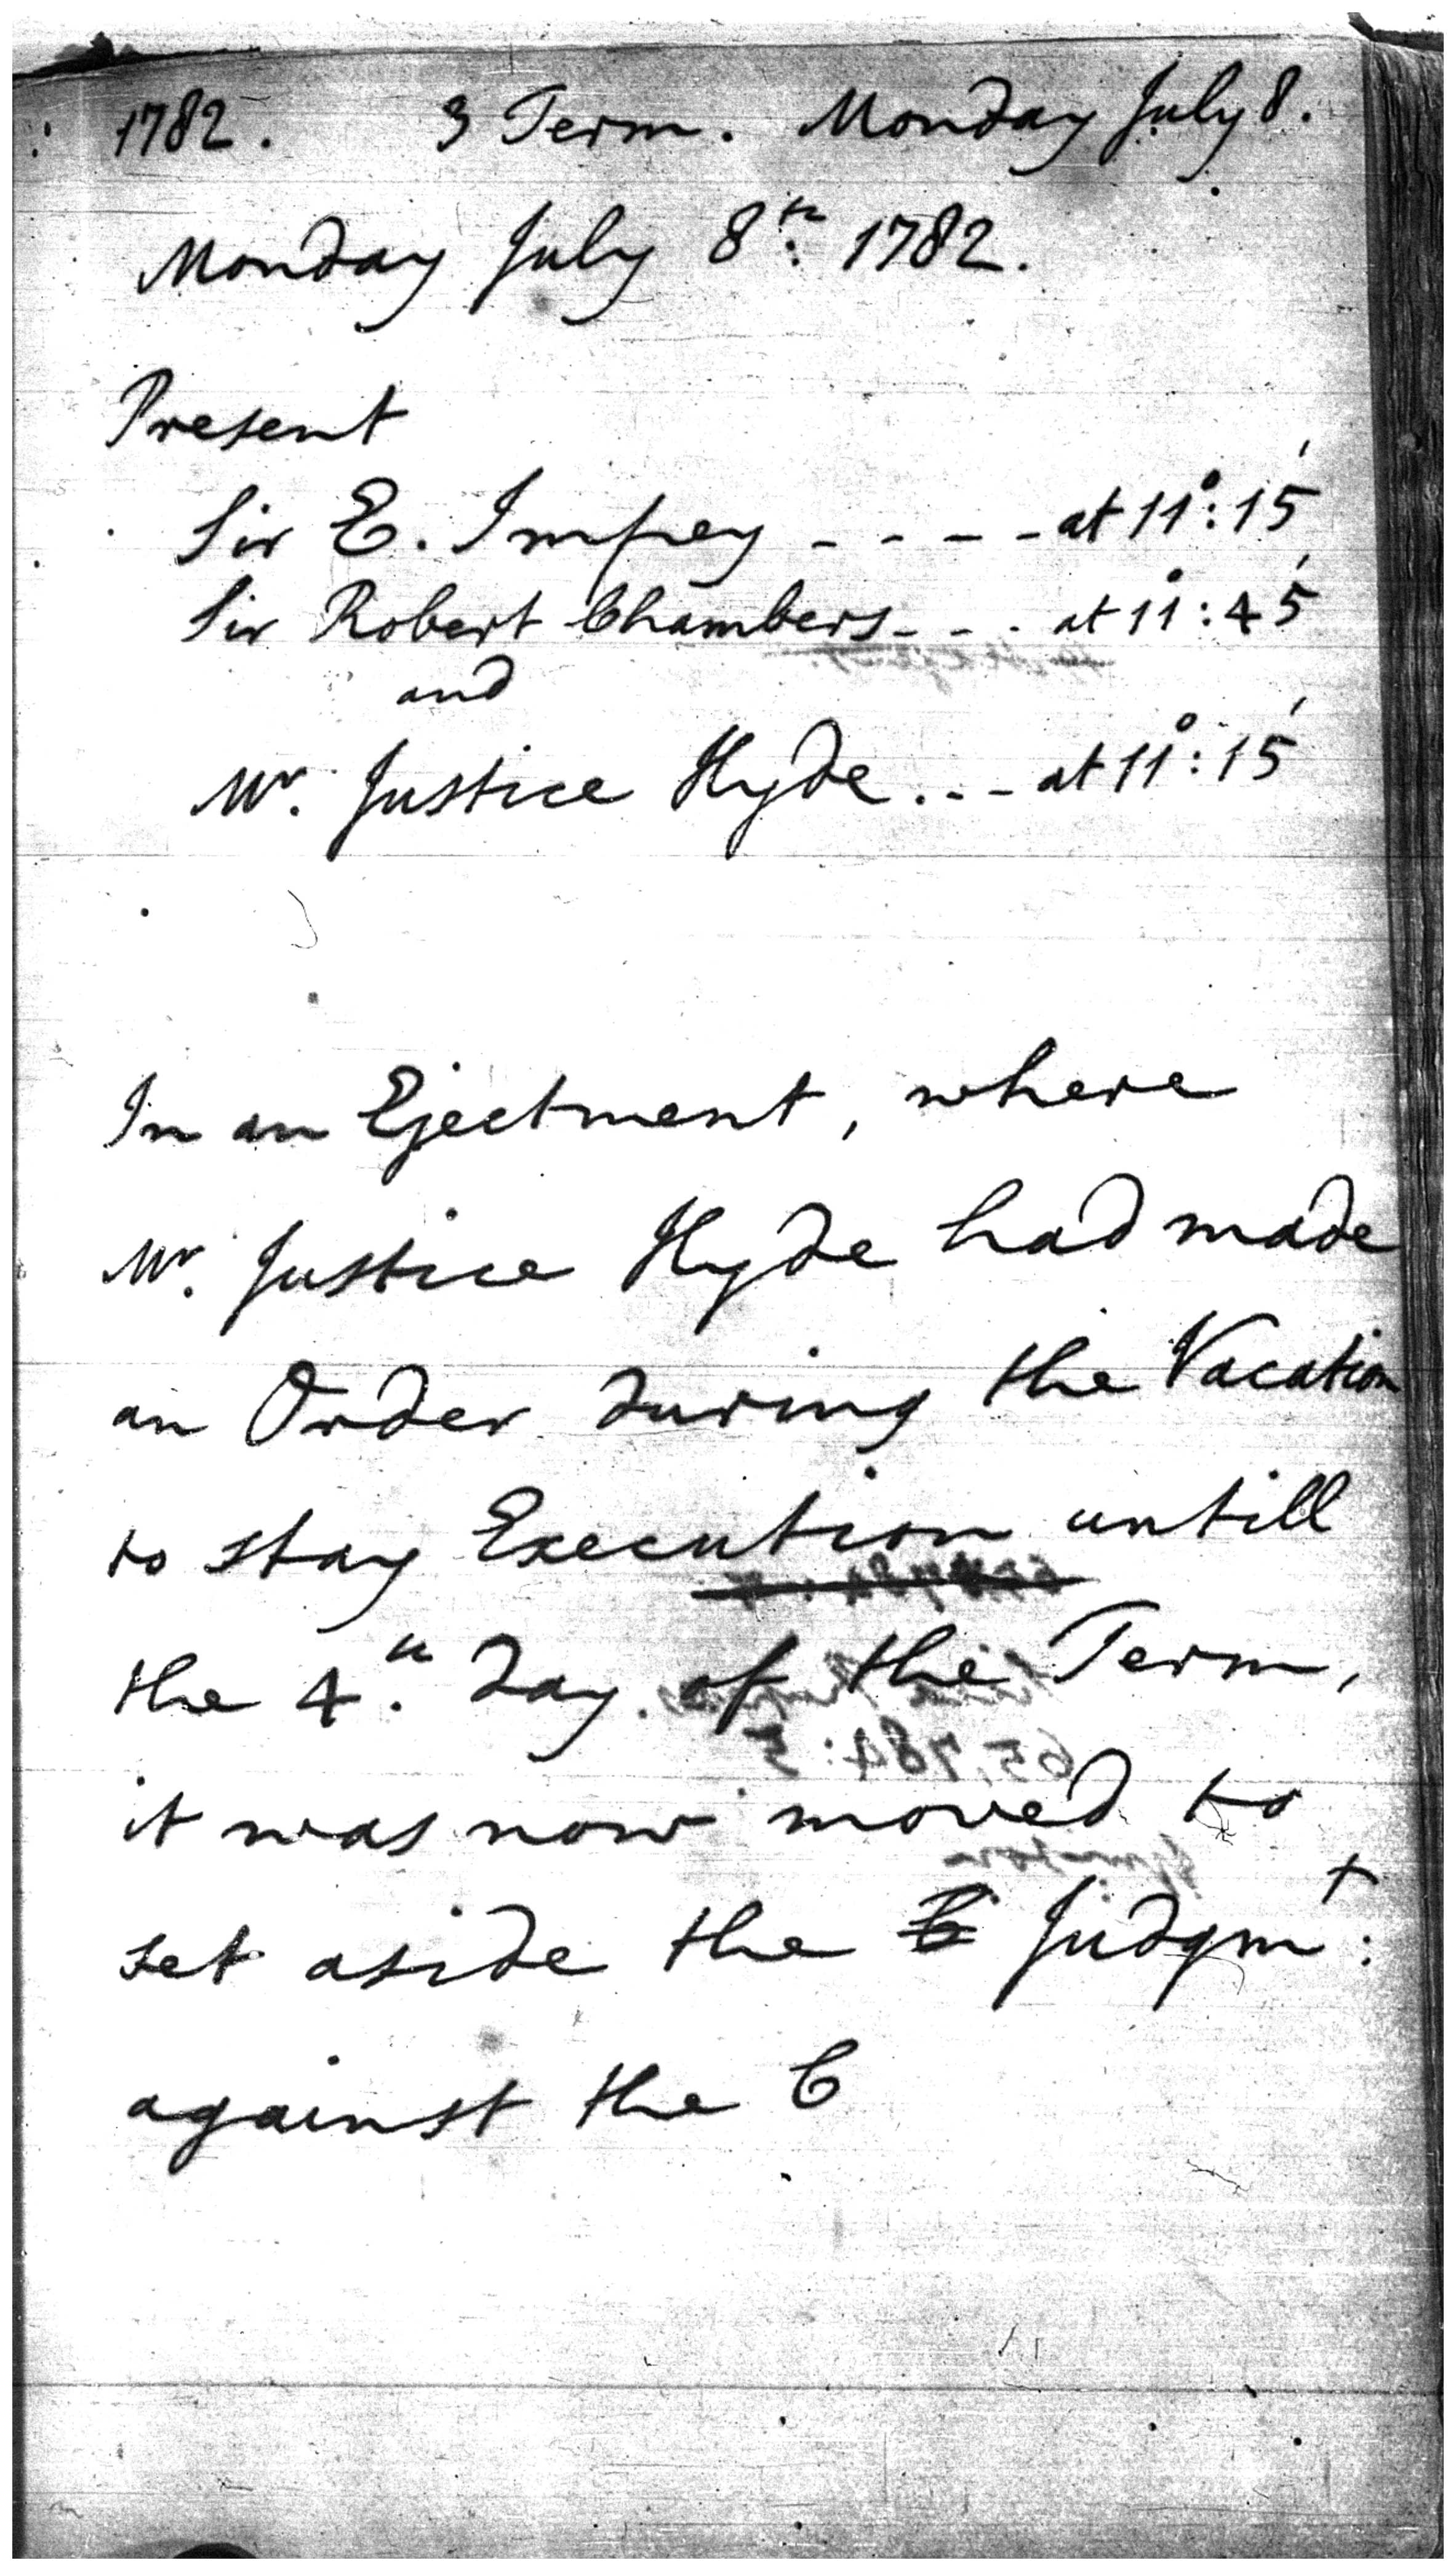 1782. 3 Term. Monday July 8.
Monday July 8th. 1782.
Present
Sir E. Impey - - - - at 11°: 15'
Sir Robert Chambers - - . at 11°: 45'
and
Mr. Justice Hyde . - - at 11°: 15'
In an Ejectment, where
Mr. Justice Hyde had made
an Order during the Vacation
to stay Execution untill
the 4th. day of the Term,
it was now moved to
set aside the C Judgmt:
against the C